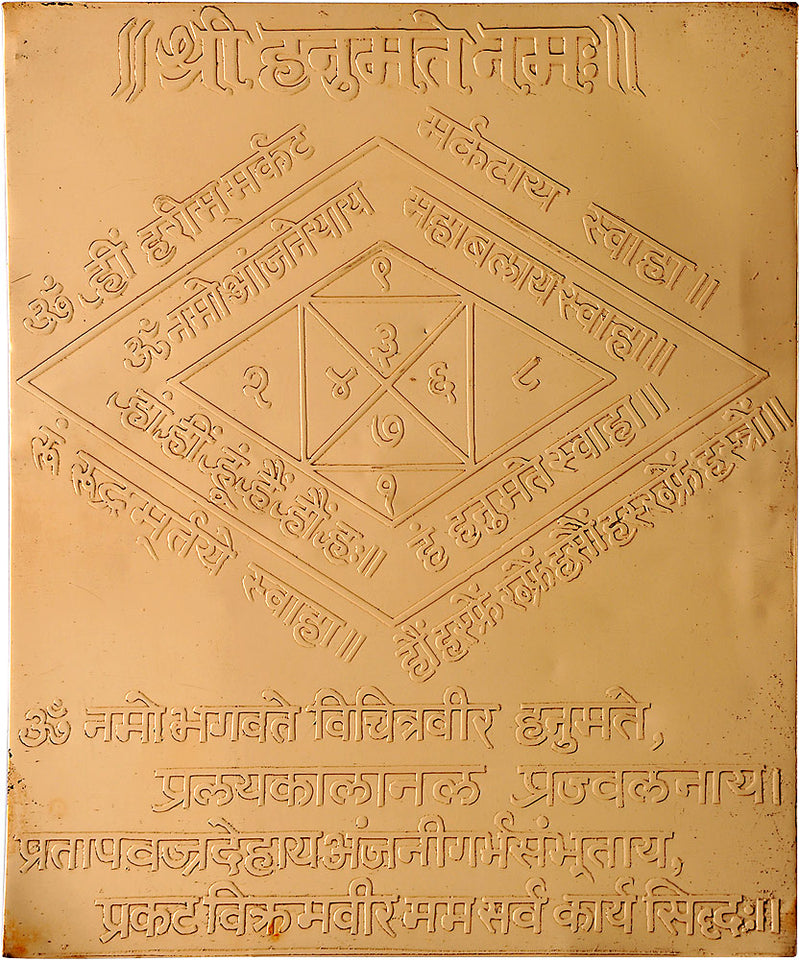 ॥श्री हनुमते नमः॥
ॐ ह्रीं हरीम् मर्कट
मर्कटाय स्वाहा॥
ॐ नमो आंजनेयाय
महाबलाय स्वाहा॥
१
३
२ ४ ६ ८
७
१
ह्रां ह्रीं ह्रूं ह्रैं ह्रौं ह्रः॥
हं हनुमते स्वाहा॥
रूं रूद्र मूर्तये स्वाहा॥
ॐ नमो भगवते विचित्रवीर हनुमते,
प्रलयकालानल प्रज्वलनाय।
प्रतापवज्रदेहाय अंजनीगर्भसंभूताय,
प्रकट विक्रमवीर मम सर्व कार्य सिद्धः॥